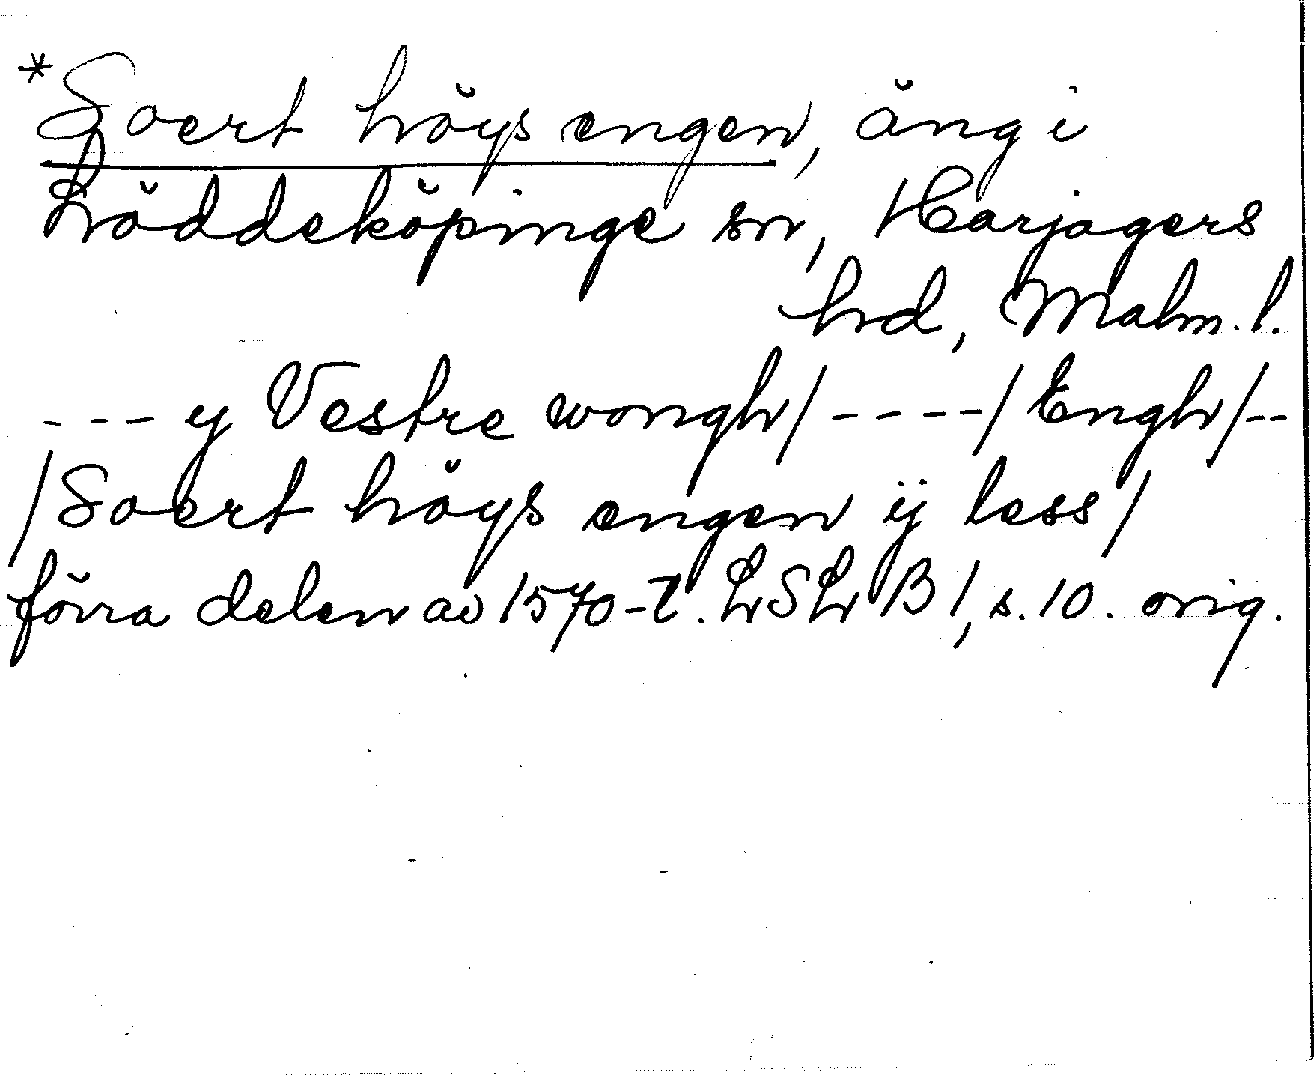 *Soert höys engen, äng i
Löddeköpinge sn, Harjagers
hd, Malm. l.
--- y Vestre wongh/----/Engh/--
/Soert höys engen ij less/
förra delen av 1570-t. LSLB 1, s. 10. orig.